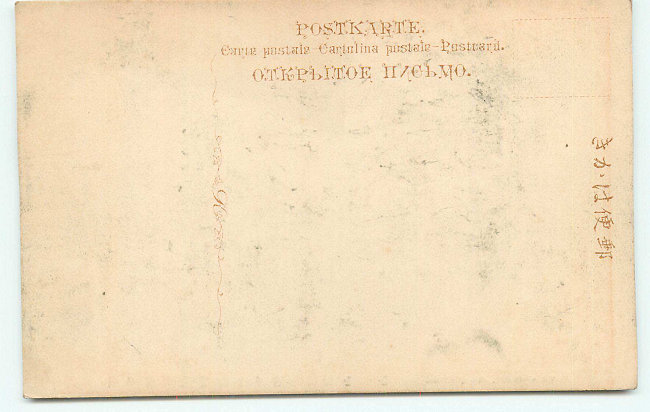 POSTKARTE.
Carte postale-Cartolina postale-Postcard.
ОТКРЫТОЕ ПИСЬМО.
郵便はかき